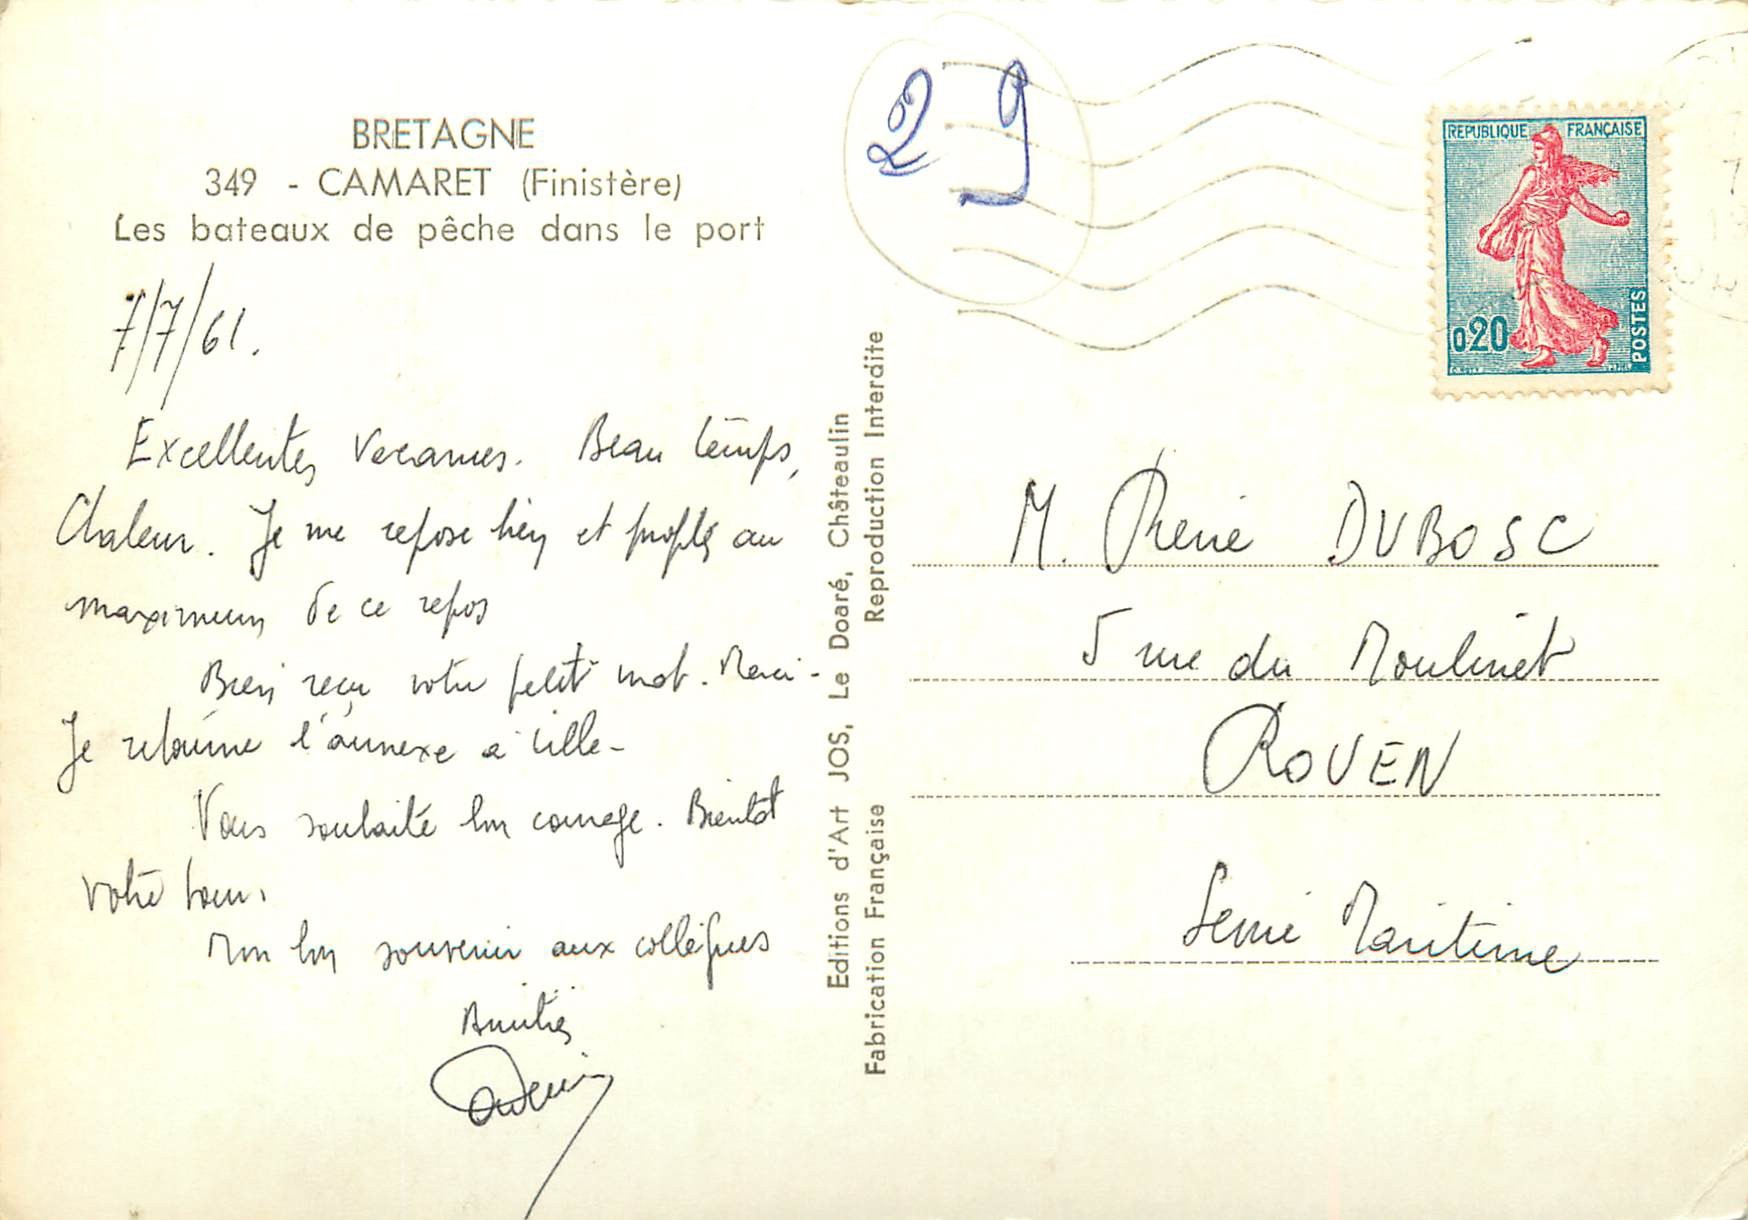 BRETAGNE
349 - CAMARET (Finistère)
Les bateaux de pêche dans le port
7/7/61.
Excellentes vacances. Beau temps,
Chaleur. Je me repose bien et profite au
maximum de ce repos
Bien reçu votre petit mot. Merci -
Je retourne l'annexe à Lille -
Vous souhaite bon courage. Bientôt
votre tour.
Mon bon souvenir aux collègues
Amitiés
Editions d'Art JOS, Le Doaré, Châteaulin
Fabrication Française Reproduction Interdite
29
REPUBLIQUE FRANÇAISE
0,20
POSTES
M. René DUBOSC
5 rue du Moulinet
ROUEN
Seine Maritime